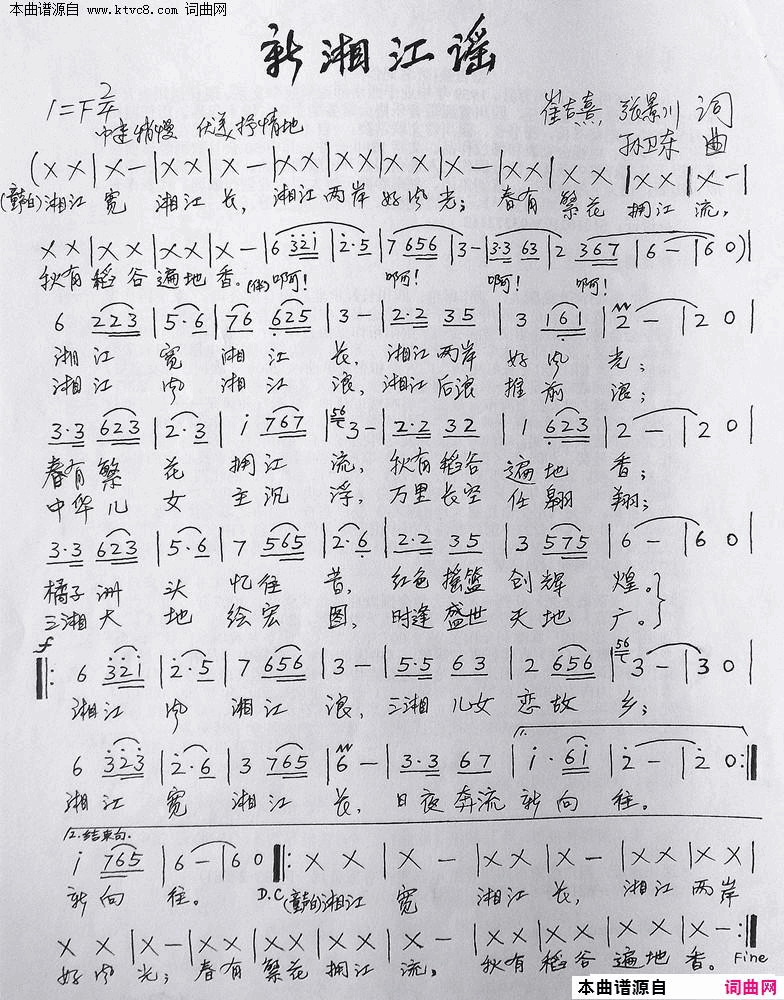 本曲谱源自 www.ktvc8.com 词曲网
新湘江谣
1=F 2/4
中速稍慢 优美抒情地
崔吉熹 张景川 词
孙卫东 曲
(X X | X — | X X | X — | X X | X X | X X | X — | X X | X X | X X | X — |
(童白)湘江 宽 湘江 长, 湘江 两岸 好风 光; 春有 繁花 拥江 流,
X X | X X | X X | X — | 6 321 | 2·5 | 7 656 | 3 — | 3·3 63 | 2 367 | 6 — | 6 0) |
秋有 稻谷 遍地 香。(伴)啊! 啊! 啊! 啊!
6 223 | 5·6 | 76 625 | 3 — | 2·2 35 | 3 161 | 2 — | 2 0 |
湘江 宽 湘江 长, 湘江两岸 好风 光;
湘江 风 湘江 浪, 湘江后浪 推前 浪;
3·3 623 | 2·3 | i 767 | 56 3 — | 2·2 32 | 1 623 | 2 — | 2 0 |
春有繁 花 拥江 流, 秋有稻谷 遍地 香;
中华儿 女 主沉 浮, 万里长空 任翱 翔;
3·3 623 | 5·6 | 7 565 | 2·6 | 2·2 35 | 3 575 | 6 — | 6 0 |
橘子洲 头 忆往 昔, 红色摇篮 创辉 煌。}
三湘大 地 绘宏 图, 时逢盛世 天地 广。}
f
‖: 6 321 | 2·5 | 7 656 | 3 — | 5·5 63 | 2 656 | 56 3 — | 3 0 |
湘江 风 湘江 浪, 三湘儿女 恋故 乡;
6 323 | 2·6 | 3 765 | 6 — | 3·3 67 | i·61 | 2 — | 2 0 :‖
湘江 宽 湘江 长, 日夜奔流 新向 往。
2.结束句.
i 765 | 6 — | 6 0 ‖: X X | X — | X X | X — | X X | X X |
新向 往。 D.C (童白)湘江 宽 湘江 长, 湘江 两岸
X X | X — | X X | X X | X X | X — | X X | X X | X X | X — :‖
好风 光; 春有 繁花 拥江 流, 秋有 稻谷 遍地 香。 Fine
本曲谱源自 词曲网